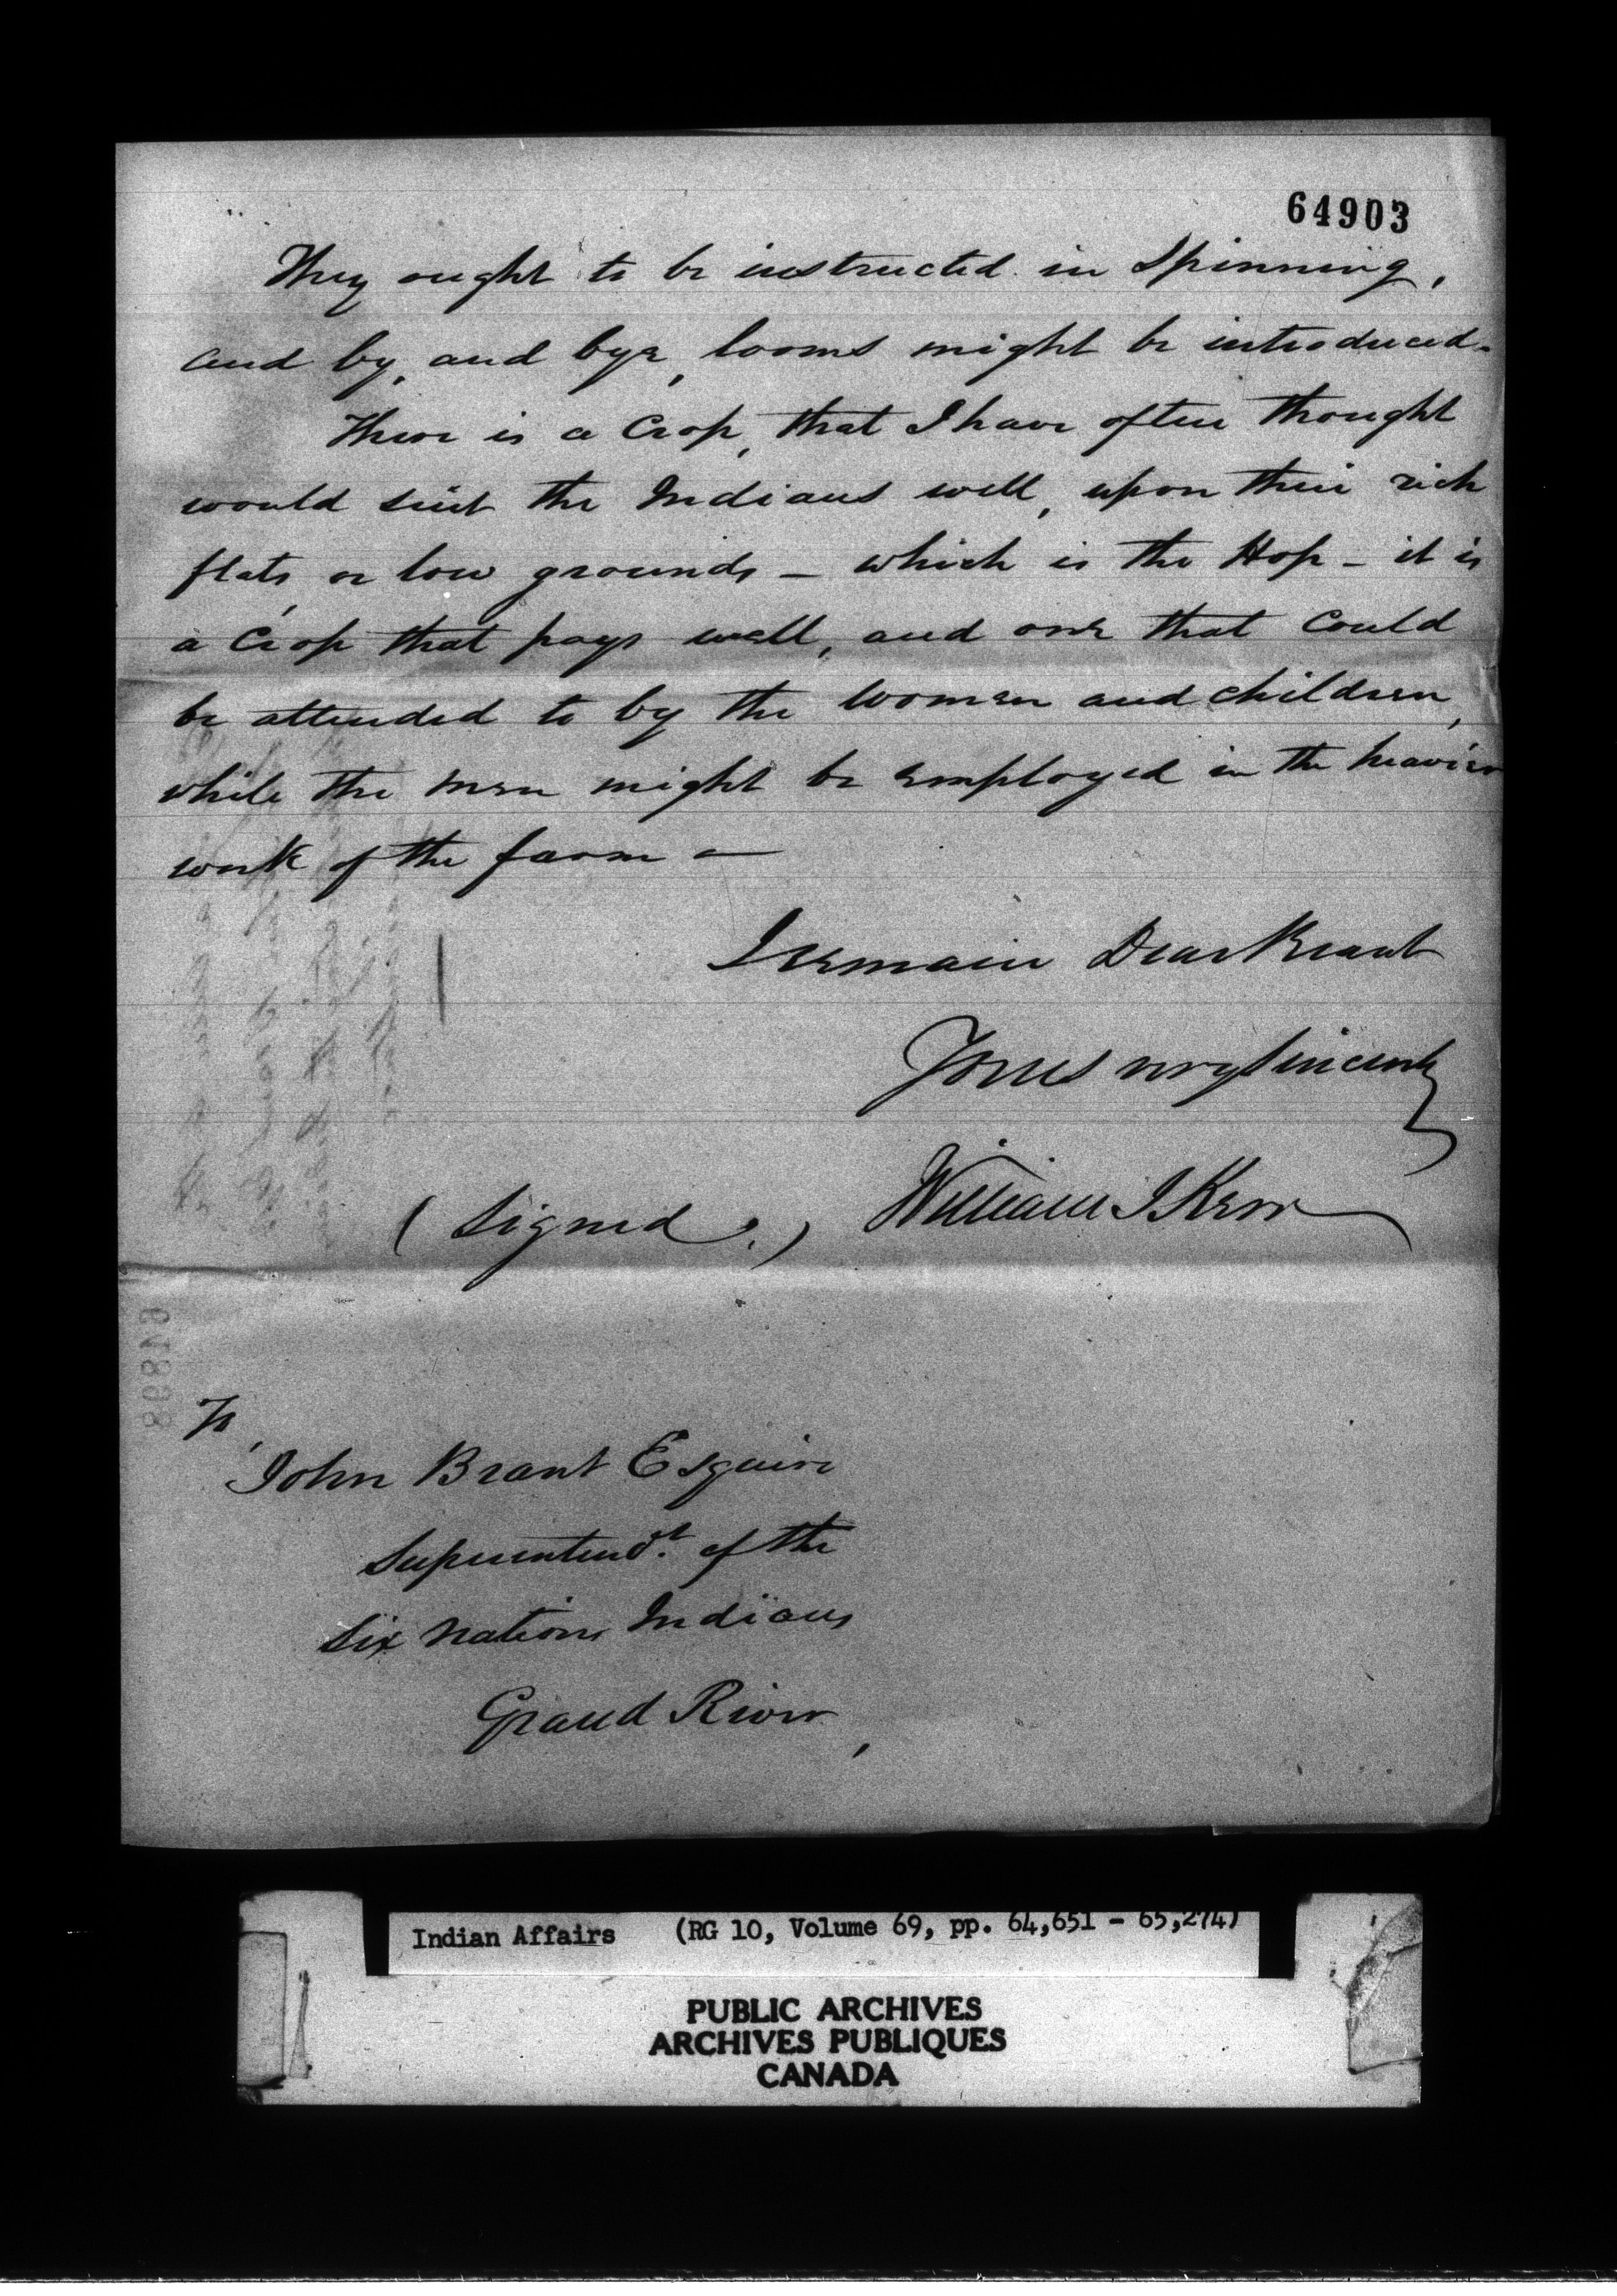 64903
They ought to be instructed in Spinning,
and by, and bye, looms might be introduced.
There is a Crop, that I have often thought
would suit the Indians well, upon their rich
flats, or low grounds – which is the Hop – it is
a Crop that pays well, and one that Could
be attended to by the women and children,
while the men might be employed in the heavier
work of the farm —
I remain Dear Brant
Yours very Sincerely
(Signed.) William J Kerr
64898
To,
John Brant Esquire
Superintendt. of the
Six Nations Indians
Grand River,
Indian Affairs (RG 10, Volume 69, pp. 64,651 - 65,274)
PUBLIC ARCHIVES
ARCHIVES PUBLIQUES
CANADA